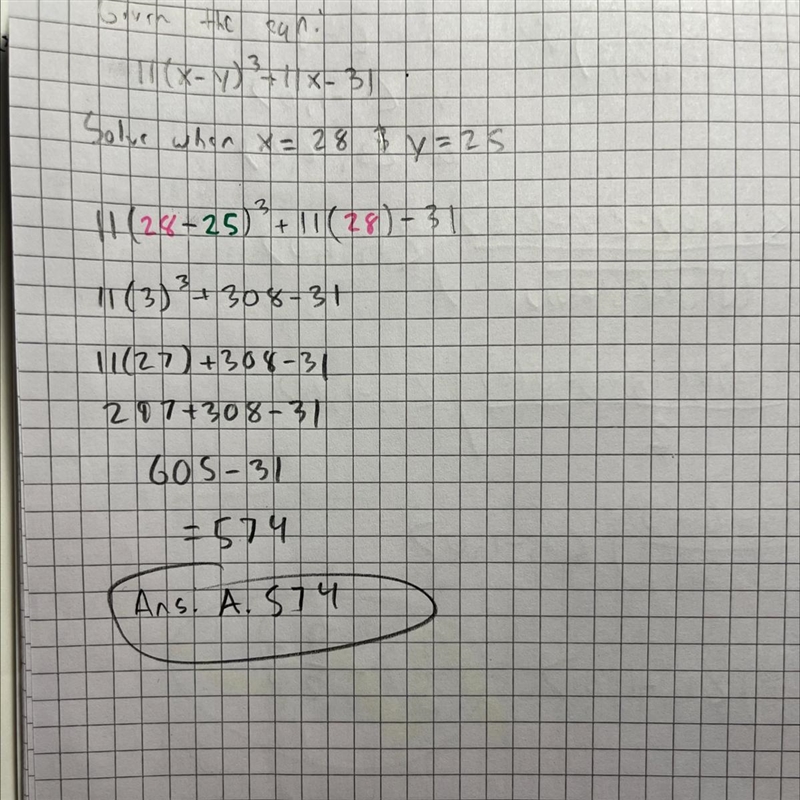 Given the eqn:
11(x-y)³+11x-31
Solve when x=28 & y=25
11(28-25)³+11(28)-31
11(3)³+308-31
11(27)+308-31
297+308-31
605-31
=574
Ans. A. 574